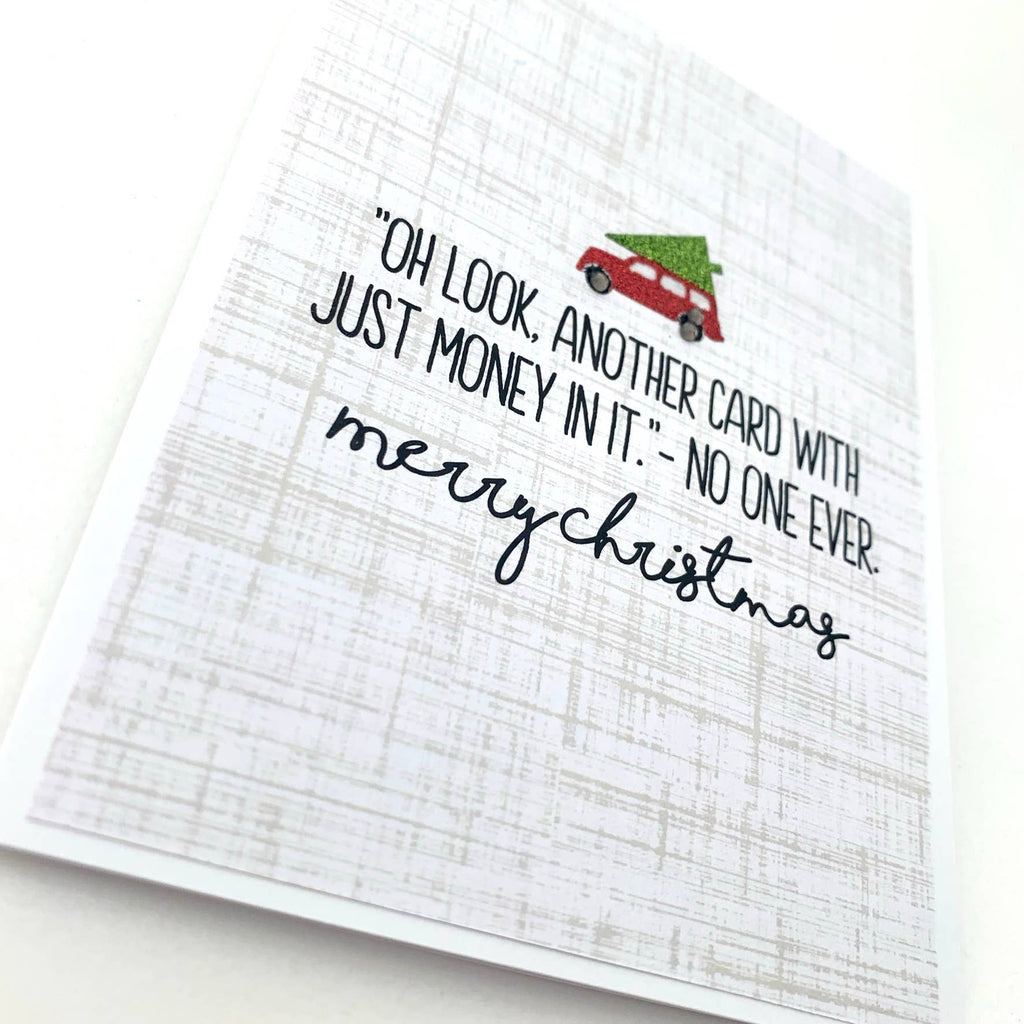 "OH LOOK, ANOTHER CARD WITH
JUST MONEY IN IT." - NO ONE EVER.
merry christmas